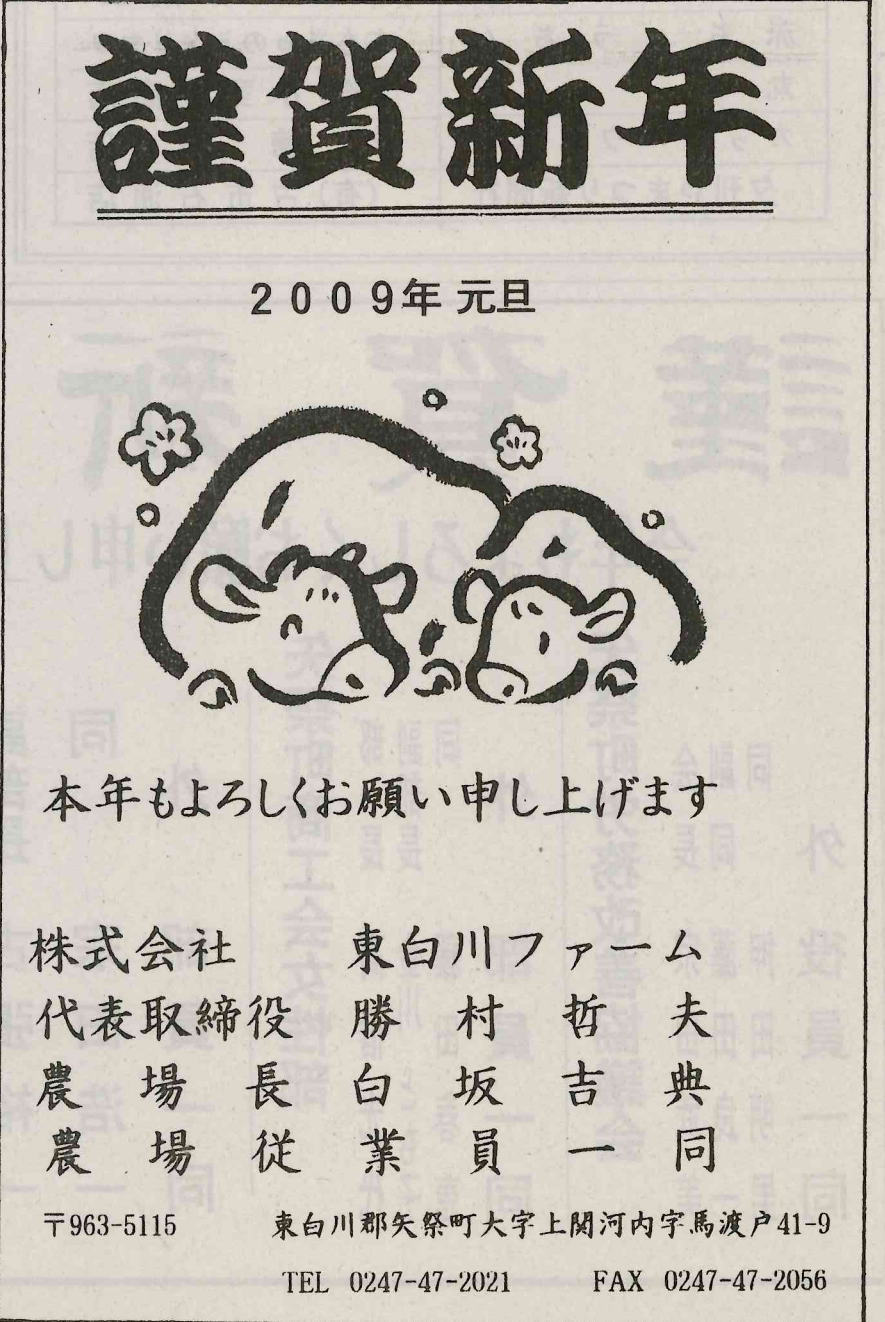 謹賀新年
2009年 元旦
本年もよろしくお願い申し上げます
株式会社 東白川ファーム
代表取締役 勝村哲夫
農場長 白坂吉典
農場従業員一同
〒963-5115 東白川郡矢祭町大字上関河内字馬渡戸41-9
TEL 0247-47-2021 FAX 0247-47-2056